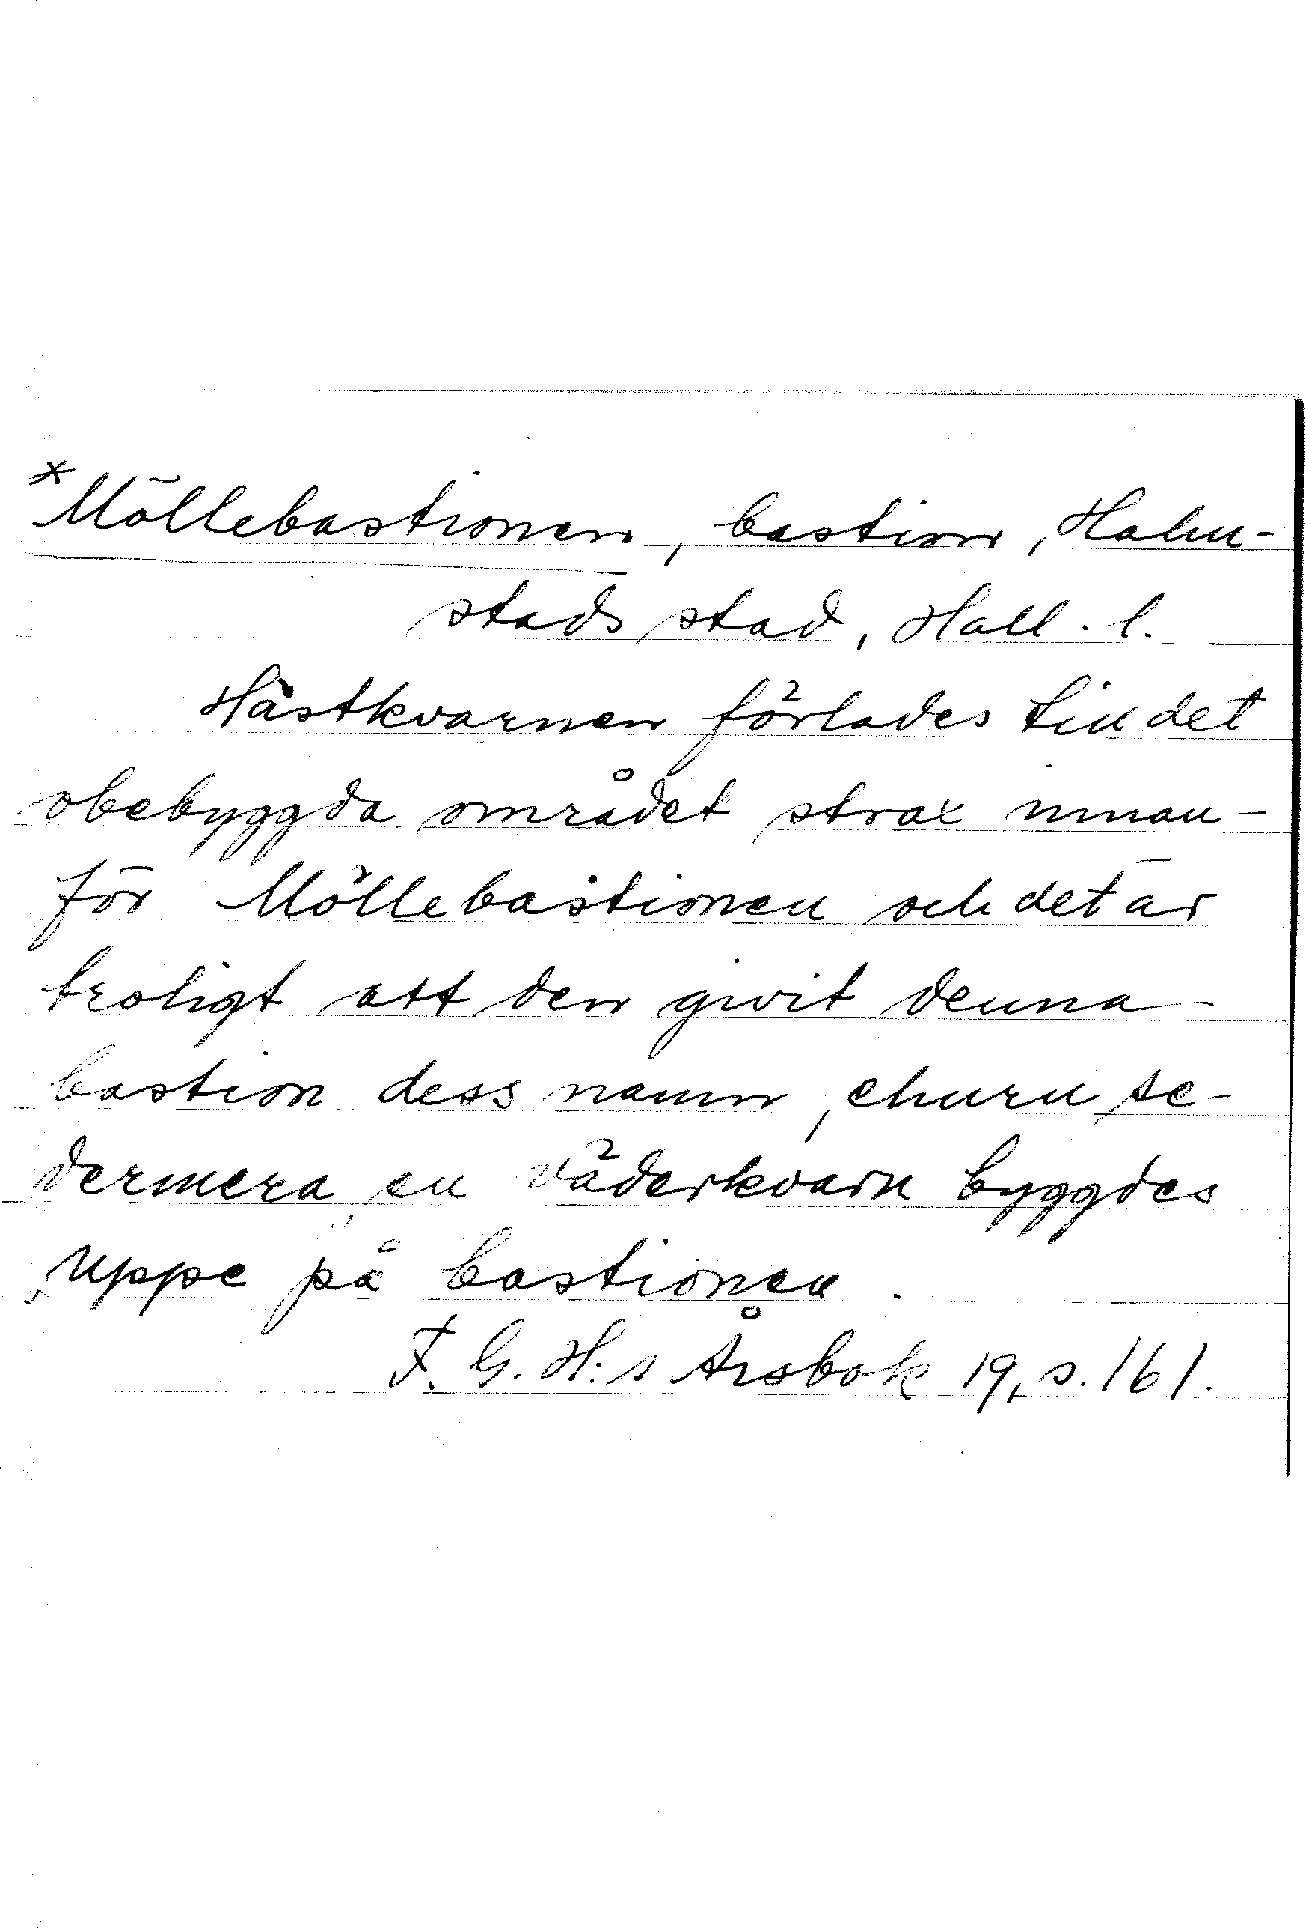 *Möllebastionen, bastion, Halm-
stads stad, Hall. l.
Hästkvarnen förlades till det
obebyggda området strax innan-
för Möllebastionen och det är
troligt att den givit denna
bastion dess namn, ehuru se-
dermera en väderkvarn byggdes
uppe på bastionen.
F. G. H:s Årsbok 19, s. 161.